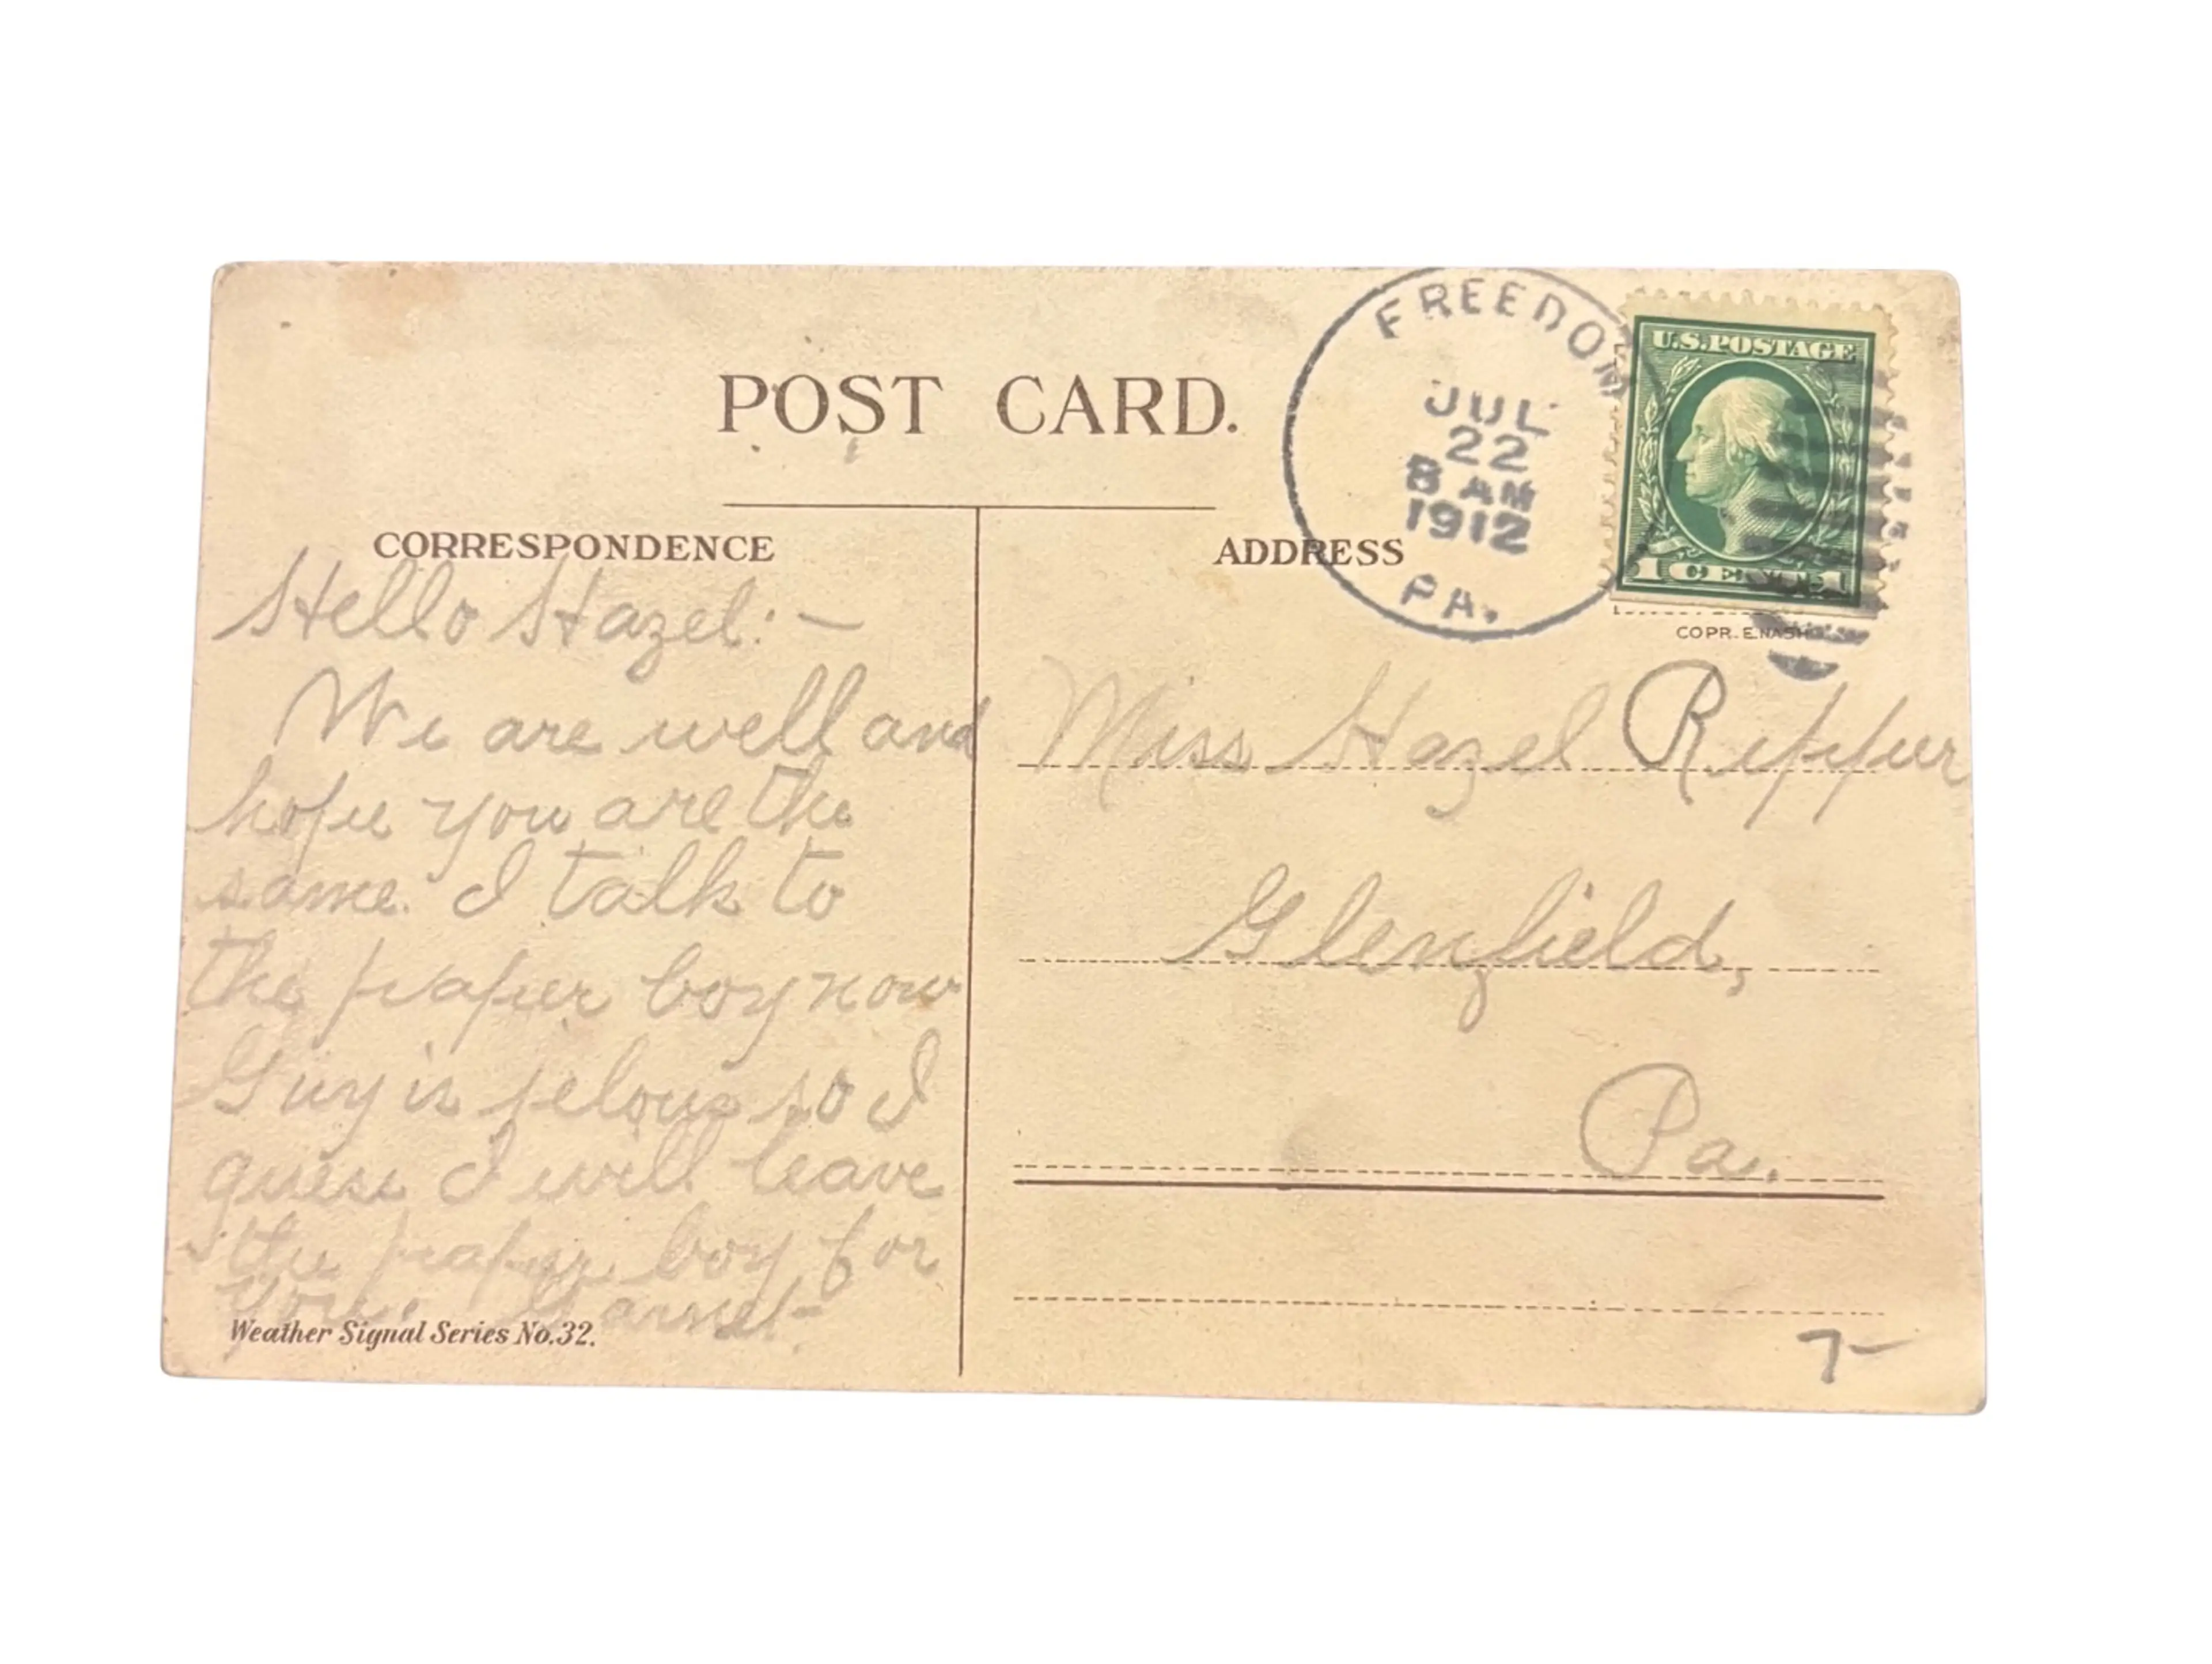 POST CARD.
FREEDOM
JUL
22
8 AM
1912
PA.
U.S.POSTAGE
1 CENT 1
COPR. E.NASH
CORRESPONDENCE
Hello Hazel:—
We are well and
hope you are the
same. I talk to
the paper boy now
Guy is jelous so I
guess I will leave
the paper boy for
you. Garnet
Weather Signal Series No.32.
ADDRESS
Miss Hazel Ripper
Glenfield,
Pa.
7-